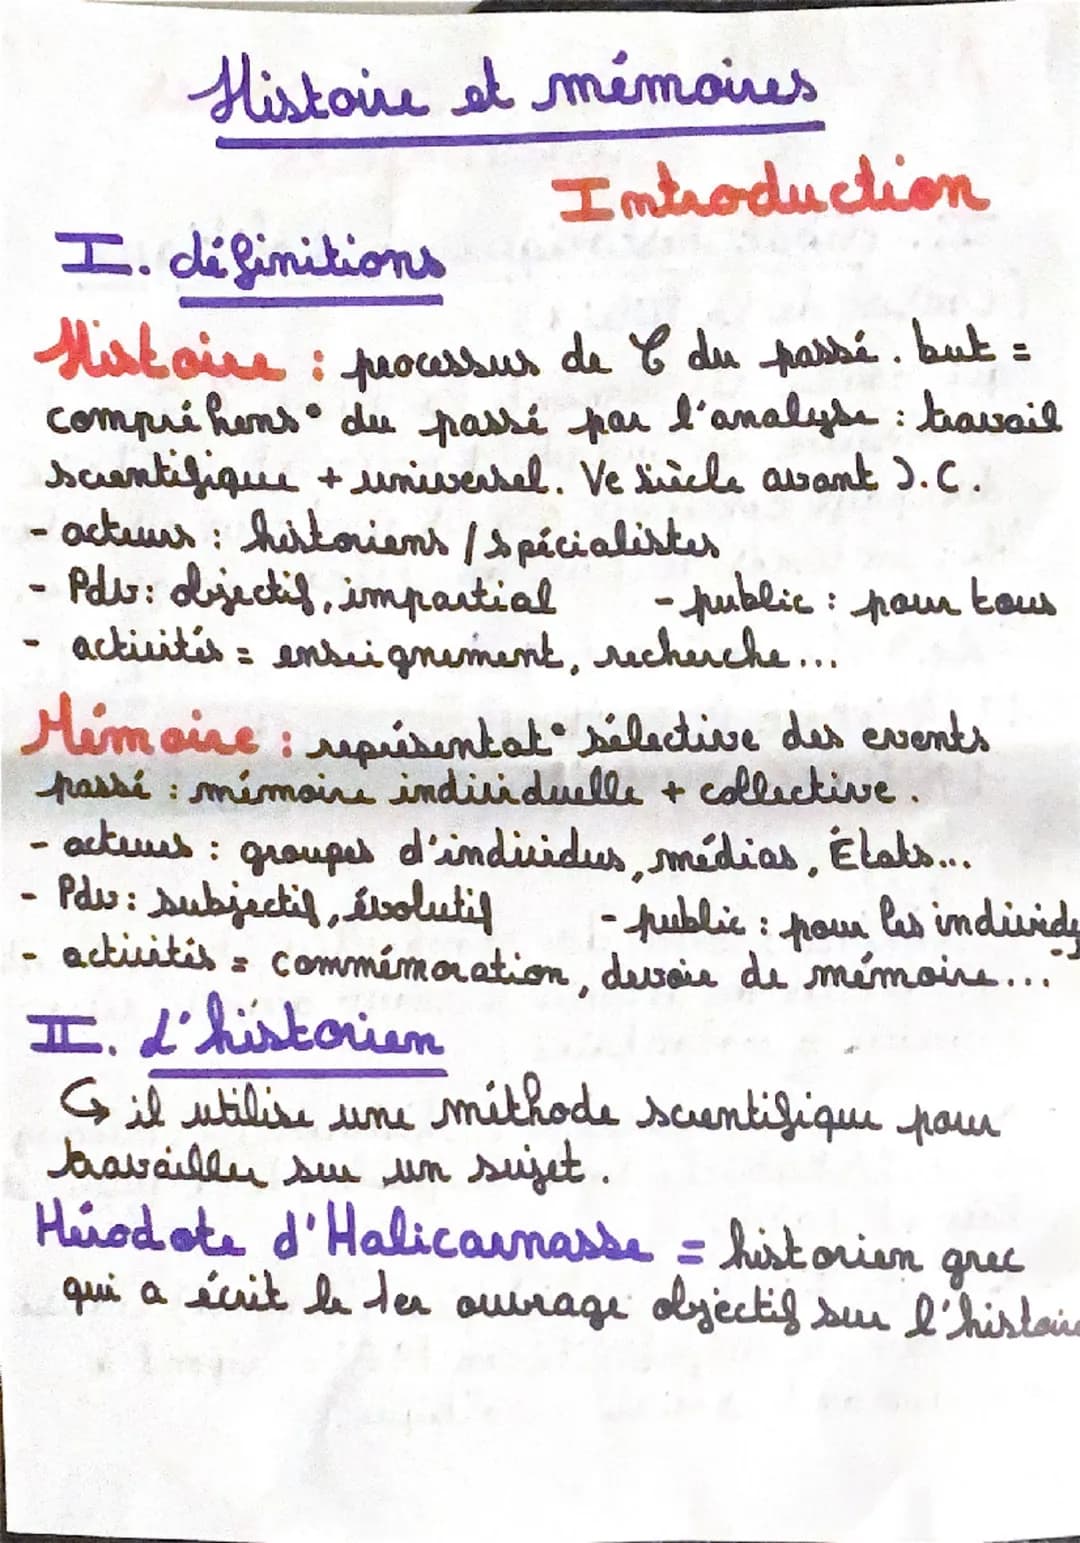 Histoire et mémoires
Introduction
I. définitions
Histoire : processus de C du passé. but =
compréhens° du passé par l'analyse : travail
scientifique + universel. Ve siècle avant J.C.
- acteurs : historiens / spécialistes
- Pdv : objectif, impartial - public : pour tous
- activités = enseignement, recherche...
Mémoire : représentat° sélective des events
passé : mémoire individuelle + collective.
- acteurs : groupes d'individus, médias, États...
- Pdv : subjectif, évolutif - public : pour les individus
- activités = commémoration, devoir de mémoire...
II. L'historien
↳ il utilise une méthode scientifique pour
travailler sur un sujet.
Hérodote d'Halicarnasse = historien grec
qui a écrit le 1er ouvrage objectif sur l'histoire